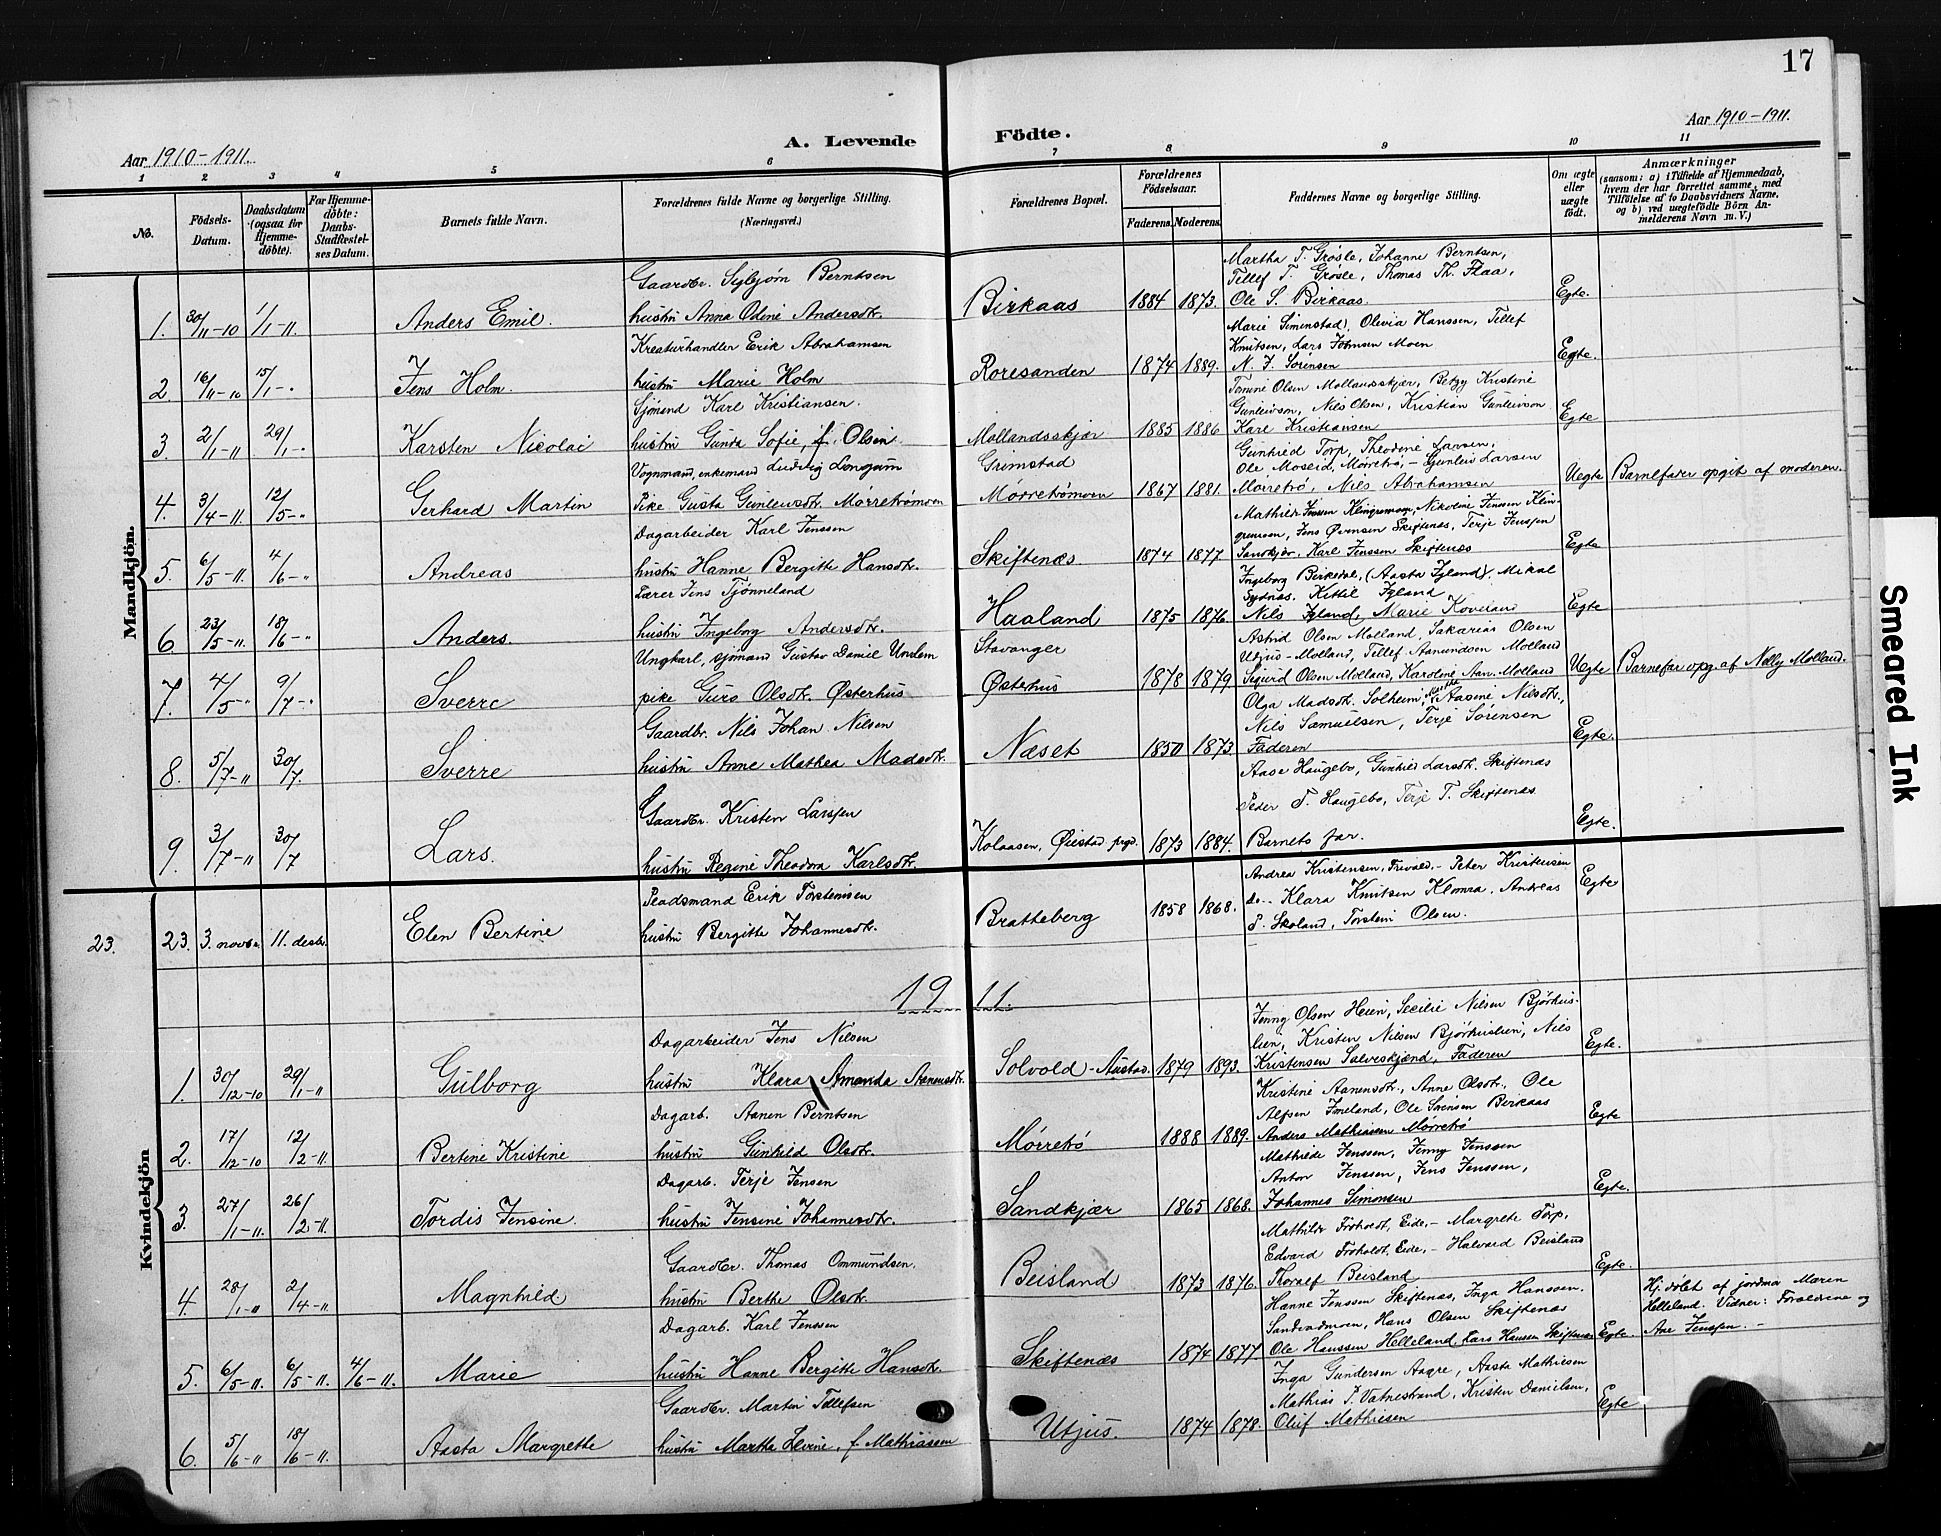 17
Aar 1910-1911.
A. Levende Födte.
Aar 1910-1911.
1 2 3 4 5 6 7 8 9 10 11
No.
Födsels-Datum.
Daabsdatum (ogsaa for Hjemme-döbte).
For Hjemme-döbte: Daabs-Stadfæstel-ses Datum.
Barnets fulde Navn.
Forældrenes fulde Navne og borgerlige Stilling.
(Næringsvei.)
Forældrenes Bopæl.
Forældrenes Födselsaar.
Faderens. Moderens.
Faddernes Navne og borgerlige Stilling.
Om ægte eller uægte födt.
Anmærkninger
(saasom: a) i Tilfælde af Hjemmedaab, hvem der har forrettet samme, med Tilföielse af to Daabsvidners Navne, og b) ved uægtefödte Börn An-melderens Navn m. V.)
Mandkjön.
Gaardbr. Sigbjørn Berntsen
Martha T. Grøsle, Johanne Berntsen,
Tellef T. Grøsle, Thomas Th. Flaa,
1. 30/11-10 1/1-11. Anders Emil. hustru Anna Odine Andersdtr. Birkaas 1884 1873. Ole S. Birkaas. Egte.
Kreaturhandler Erik Abrahamsen
Marie Simenstad, Olivia Hanssen, Tellef
Knutsen, Lars Johnsen Moen
2. 16/11-10 15/1-" Jens Holm. hustru Marie Holm Roresanden 1874 1889. N. J. Sørensen Egte.
Sjømand Karl Kristiansen.
Tomine Olsen Mollandsskjær, Betzy Kristine
Gunleivson, Nils Olsen, Kristian Gunleivson
3. 2/1-11 29/1-" Karsten Nicolai hustru Gunda Sofie, f. Olsen. Mollandsskjær 1885 1886 Karl Kristiansen Egte
Vognmand, enkemand Ludvig Longum Grimstad
Gunhild Torp, Theodine Larsen,
Ole Moseid, Mørretrø, - Gunleiv Larsen
4. 3/4-11. 12/5-" Gerhard Martin Pike Gusta Gunleivsdtr. Mørretrømoen Mørretrømoen 1867 1881. Mørretrø, Nils Abrahamsen Uegte Barnefader opgit af moderen.
Dagarbeider Karl Jenssen
Mathilde Jenssen Klingremoen, Nikoline Jensen Klin-
gremoen, Jens Øvensen Skiftenæs, Terje Jenssen
5. 6/5-11. 4/6-" Andreas hustru Hanne Bergitte Hansdtr. Skiftenæs 1874 1877. Sandkjær, Karl Jenssen Skiftenæs Egte
Lærer Jens Tjønneland
Ingeborg Birkedal, (Aasta Igland), Mikal
Sydnæs, Kittil Igland
6. 23/5-11. 18/6-" Anders. hustru Ingeborg Andersdtr. Haaland 1875 1876. Nils Igland, Marie Koveland Egte
Ungkarl, sjømand Gustav Daniel Stavanger
Astrid Olsen Molland, Sakarias Olsen
Utjus-Molland, Tellef Aanundsen Molland
7. 4/5-" 9/7-" Sverre pike Guro Olsdtr. Østerhus Østerhus 1878 1879 Sigurd Olsen Molland, Karoline Aan. Molland Uegte Barnefar opg. af Nelly Molland.
Gaardbr. Nils Johan Nilsen
Olga Madsdtr. Solheim, Aasine Nilsdtr.,
Nils Samuelsen, Terje Sørensen
8. 5/7-11 30/7. Sverre hustru Anne Mathea Madsdtr. Næset 1850 1873 Faderen Egte.
Gaardbr. Kristen Larssen
Aase Haugebo, Gunhild Larsdtr. Skiftenæs
Peder T. Haugebo, Terje T. Skiftenæs
9. 3/7-11 30/7 Lars. hustru Regine Theodora Karlsdtr. Kolaasen, Øiestad prgd. 1873 1884. Barnets far. Egte.
Kvindekjön
Pladsmand Erik Torsteinsen
Andrea Kristensen, Trivold, - Peter Kristensen
23. 23. 3. novbr. 11. desbr. Elen Bertine hustru Bergitte Johannesdtr. Bratteberg 1858 1868. do. - Klara Knutsen Klomra, Andreas Egte
P. Skoland, Torstein Olsen.
1911.
Dagarbeider Jens Nilsen
Jenny Olsen Heien, Secilie Nilsen Bjørhus-
lien, Kristen Nilsen Bjørhuslien, Nils
1. 30/12-10 29/1-11 Gulborg hustru Klara Amanda Aanensdtr. Solvold-Austad. 1879 1893. Kristensen Salveskjænd, Faderen Egte.
Dagarb. Aanen Berntsen
Kristine Aanensdtr., Anne Olsdtr., Ole
Alfsen Imeland, Ole Sørensen Birkaas
2. 17/12-10 12/2-11. Bertine Kristine hustru Gunhild Olsdtr. Mørretrø 1888 1889. Anders Mathiassen Mørretrø Egte
Dagarb. Terje Jensen
Mathilde Jenssen, Jenny Jenssen
Anton Jenssen, Jens Jenssen,
3. 27/1-11. 26/2-11. Tordis Jensine. hustru Jensine Johannesdtr. Sandkjær 1865 1868. Johannes Simonsen Egte.
Gaardbr. Thomas Ommundsen.
Mathilde Froholdt, Eide, - Margrete Torp,
Edvard Froholdt, Eide, - Halvard Beisland
4. 28/1-11 2/4-11 Magnhild hustru Berthe Olsdtr. Beisland 1873 1876. Thoralf Beisland Egte.
Dagarb. Karl Jenssen
Hanne Jenssen Skiftenæs, Inga Hanssen,
Sandvedmoen, Hans Olsen Skiftenæs
Hj. døbt af jordmor Maren
Helleland. Vidner: Forældrene og
5. 6/5-11. 6/5-11. 4/6-11. Marie hustru Hanne Bergitte Hansdtr. Skiftenæs 1874 1877. Ole Hanssen Helleland, Lars Hanssen Skiftenæs Egte. Ane Jenssen. -
Gaardbr. Martin Tellefsen
Inga Gundersen Aagre, Aasta Mathiesen
Mathias P. Vatnestrand, Kristen Danielsen,
6. 5/6-11 18/6-11. Aasta Margrethe hustru Martha Levine, f. Mathiassen Utjus. 1874 1878. Oluf Mathiesen Egte
Smeared Ink